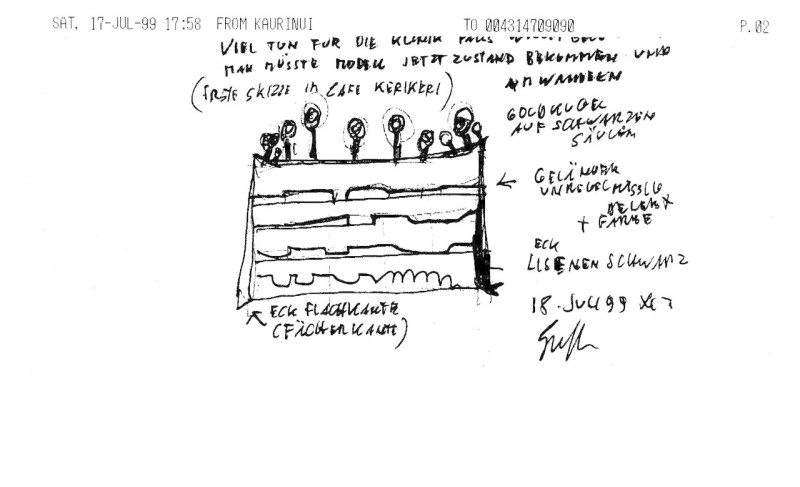 SAT, 17-JUL-99 17:58 FROM KAURINUI TO 004314709090 P.02
VIEL TUN FÜR DIE KLINIK FALLS
MAN MÜSSTE MODELL JETZT ZUSTAND BEKOMMEN UND
UMWANDELN
(ERSTE SKIZZE IM CAFE KERIKERI)
GOLDKUGEL
AUF SCHWARZEN
SÄULEN
GELÄNDER
UNREGELMÄSSIG
+ FARBE
ECK
LISENEN SCHWARZ
ECK FLACHKANTE
(FÄCHERKANTE)
18. JULI 99